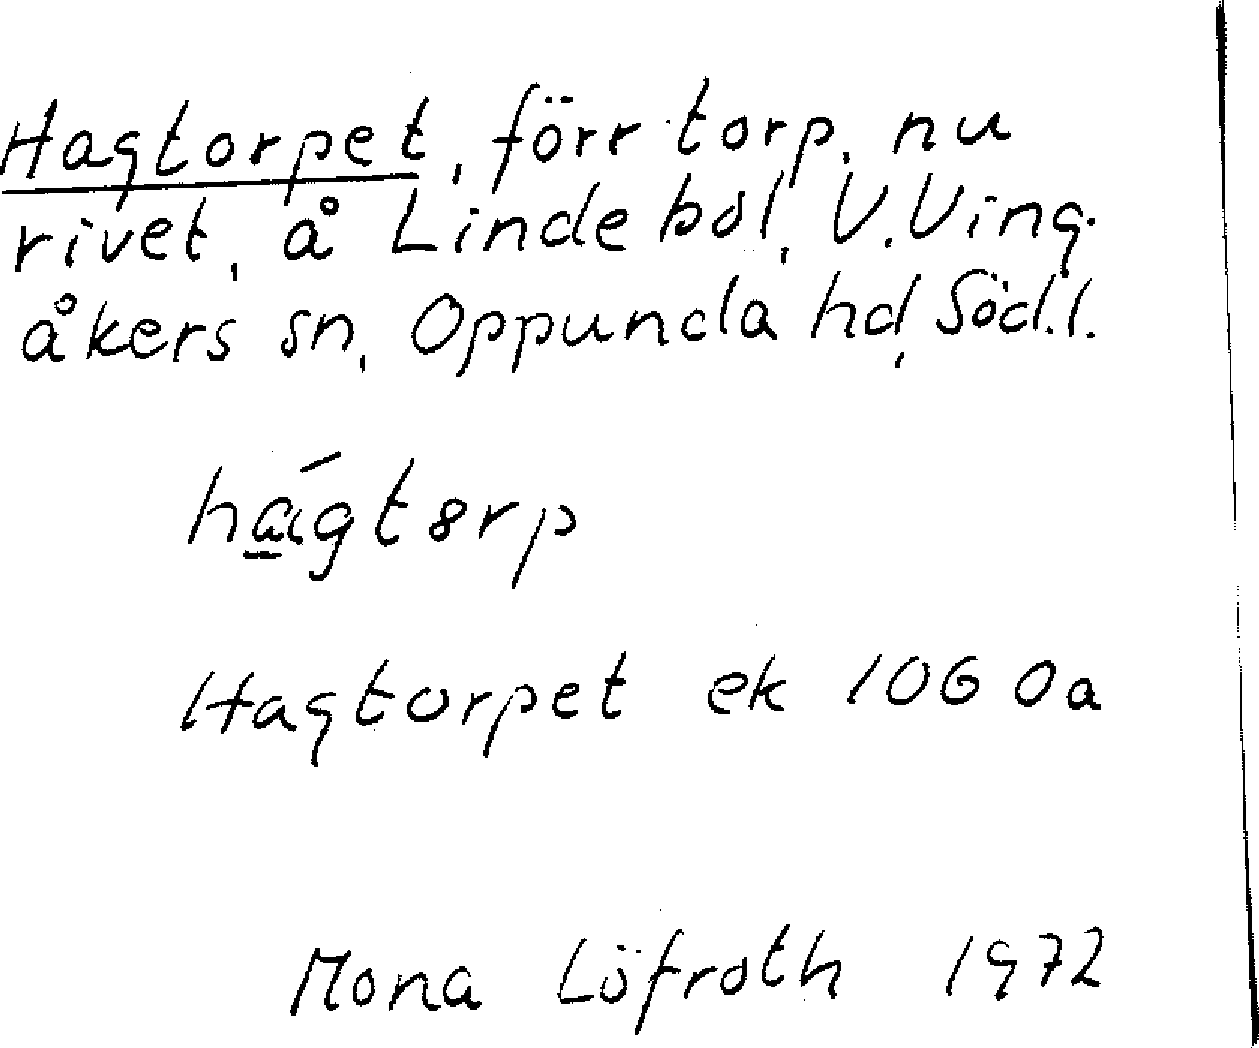 Hagtorpet, förr torp, nu
rivet, å Lindebol, V.Ving-
åkers sn, Oppunda hd, Söd.l.
hágtorp
Hagtorpet ek 106 0a
Mona Löfroth 1972